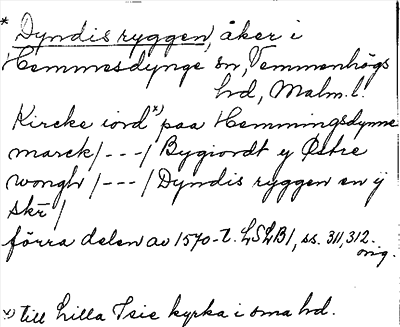 * Dyndis ryggen, åker i
Hemmesdynge sn, Vemmenhögs
hd, Malm. l.
Kircke iord *) paa Hemmingsdynne
marck /---/ Bygiordt y Østre
wongh /---/ Dyndis ryggen en ÿ
skr /
förra delen av 1570-t. LSLB1, ss. 311, 312.
orig.
*) till Lilla Isie kyrka i sma hd.